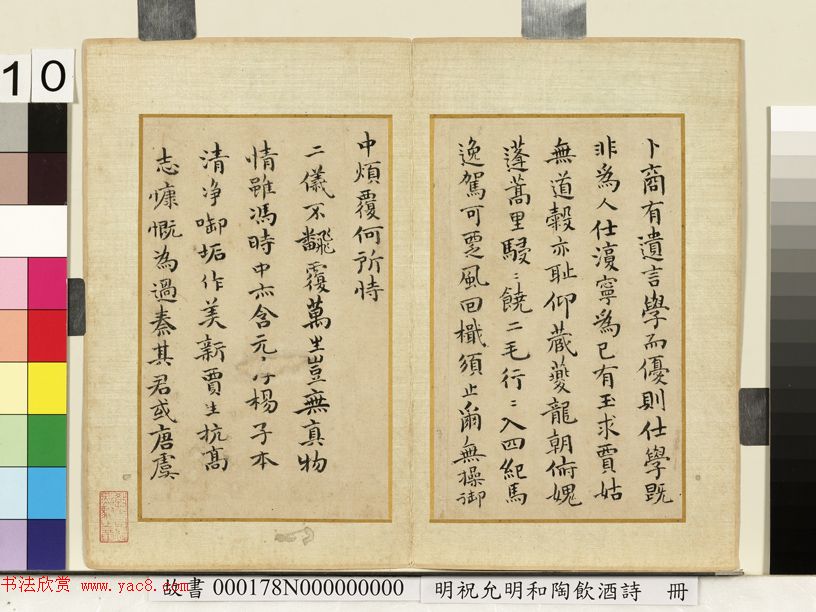 卜商有遺言學而優則仕學既
非爲人仕寧爲已有玉求賈姑
無道穀亦耻仰蔵夔龍朝俯媿
蓬蒿里駸〻饒二毛行〻入四紀馬
逸駕可更風回檝須止爾無操御
中煩覆何所恃
二儀不飜覆萬生豈無真物
情雖馮時中亦含元楊子本
清净啣垢作美新賈生抗髙
志慷慨為過秦其君或唐虞
10
书法欣赏 www.yac8.com
故書 000178N000000000 明祝允明和陶飲酒詩 冊